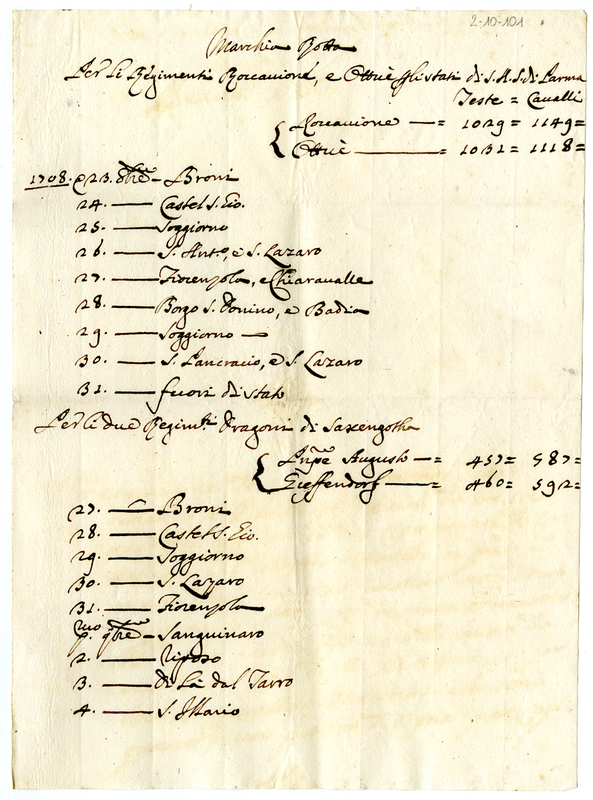 2-10-101
Marchia Botta
Per li Regimenti Roccavione, e Ottuè gli stati di S.A.S. di Parma
Teste = Cavalli
Roccavione — = 1029 = 1149 =
Ottuè — = 1031 = 1118 =
1708. 23. 8bre — Broni
24. — Castel S. Gio.
25. — Soggiorno
26. — S. Anto, e S. Lazaro
27. — Fiorenzola, e Chiaravalle
28. — Borgo S. Donino, e Badia
29. — Soggiorno —
30. — S. Pancracio, e S. Lazaro
31. — fuori di stato
Per li due Regimti Dragoni di Saxengotha
Prípe Augusto — = 457 = 587 =
Gieffendorf — = 460 = 592 =
27. — Broni
28. — Castel S. Gio.
29. — Soggiorno
30. — S. Lazaro
31. — Fiorenzola
pmo 9bre — Sanguinaro
2. — Riposo
3. — di Là dal Tarro
4. — S. Illario